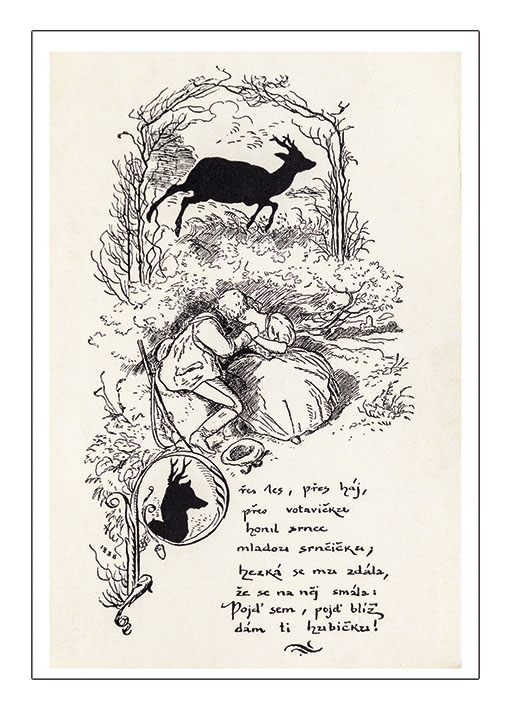 Přes les, přes háj,
přes votavičku
honil srnce
mladou srnčičku;
hezká se mu zdála,
že se na něj smála:
Pojď sem, pojď blíž
dám ti hubičku!